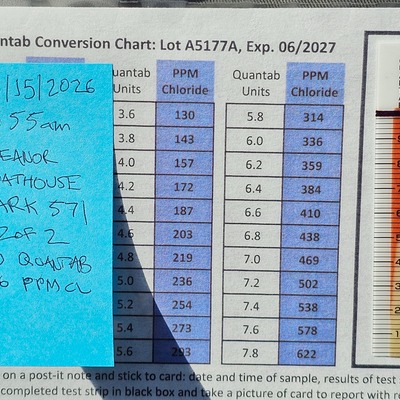 ntab Conversion Chart: Lot A5177A, Exp. 06/2027
/15/2026
55am
EANOR
OATHOUSE
ARK 571
2 of 2
QUANTAB
6 PPM CL
uantab Units PPM Chloride Quantab Units PPM Chloride
3.6 130 5.8 314
3.8 143 6.0 336
4.0 157 6.2 359
4.2 172 6.4 384
4.4 187 6.6 410
4.6 203 6.8 438
4.8 219 7.0 469
5.0 236 7.2 502
5.2 254 7.4 538
5.4 273 7.6 578
5.6 293 7.8 622
on a post-it note and stick to card: date and time of sample, results of test
completed test strip in black box and take a picture of card to report with